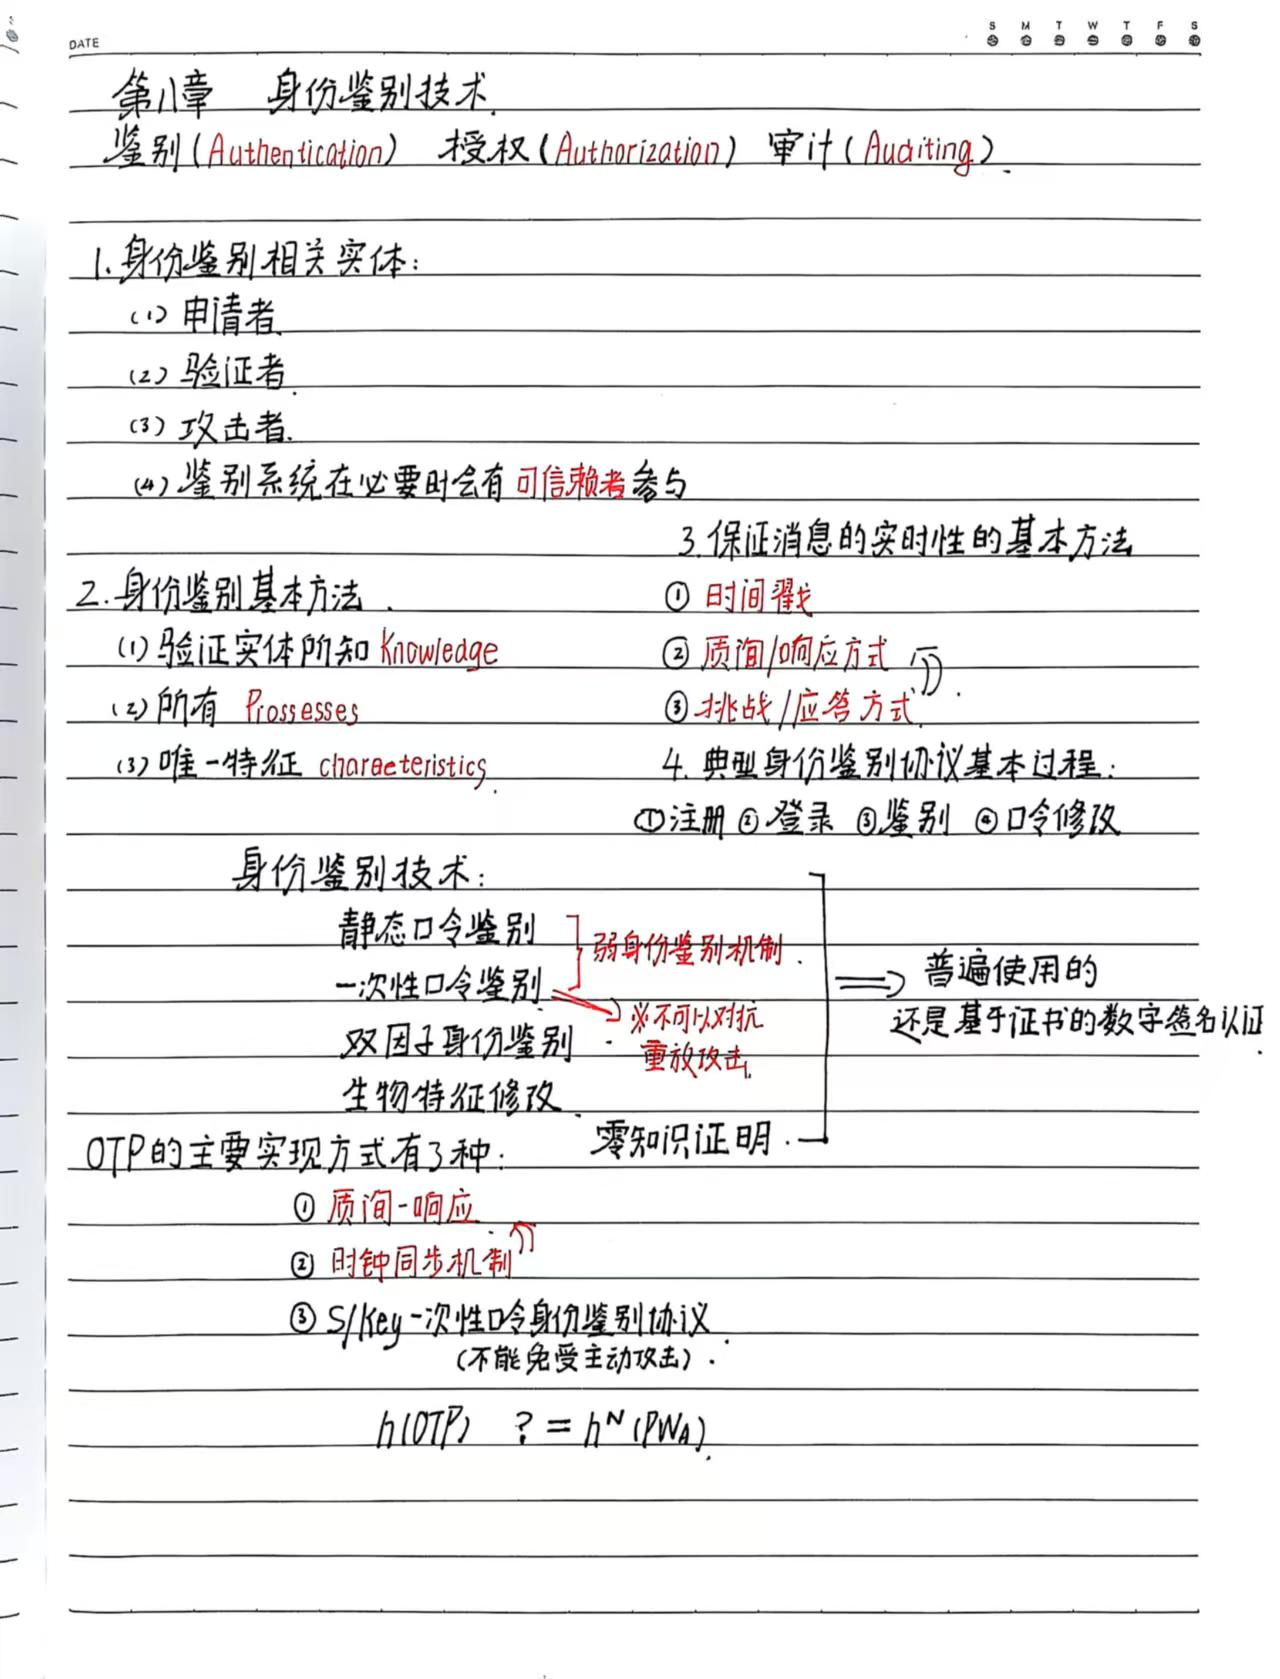 DATE
S M T W T F S
第八章 身份鉴别技术.
鉴别(Authentication) 授权(Authorization) 审计(Auditing).
1.身份鉴别相关实体:
(1)申请者.
(2)验证者.
(3)攻击者.
(4)鉴别系统在必要时会有可信赖者参与
2.身份鉴别基本方法.
(1)验证实体所知 Knowledge
(2)所有 Prossesses
(3)唯一特征 characteristics.
3.保证消息的实时性的基本方法
① 时间戳
② 质询/响应方式
③挑战/应答方式.
4.典型身份鉴别协议基本过程:
①注册 ②登录 ③鉴别 ④口令修改
身份鉴别技术:
静态口令鉴别
一次性口令鉴别
弱身份鉴别机制.
※不可以对抗
重放攻击.
双因子身份鉴别.
生物特征修改.
零知识证明.
⇒ 普遍使用的
还是基于证书的数字签名认证.
OTP的主要实现方式有3种:
① 质询-响应.
② 时钟同步机制
③ S/Key一次性口令身份鉴别协议.
(不能免受主动攻击).
h(OTP) ?= hᴺ(PWA).